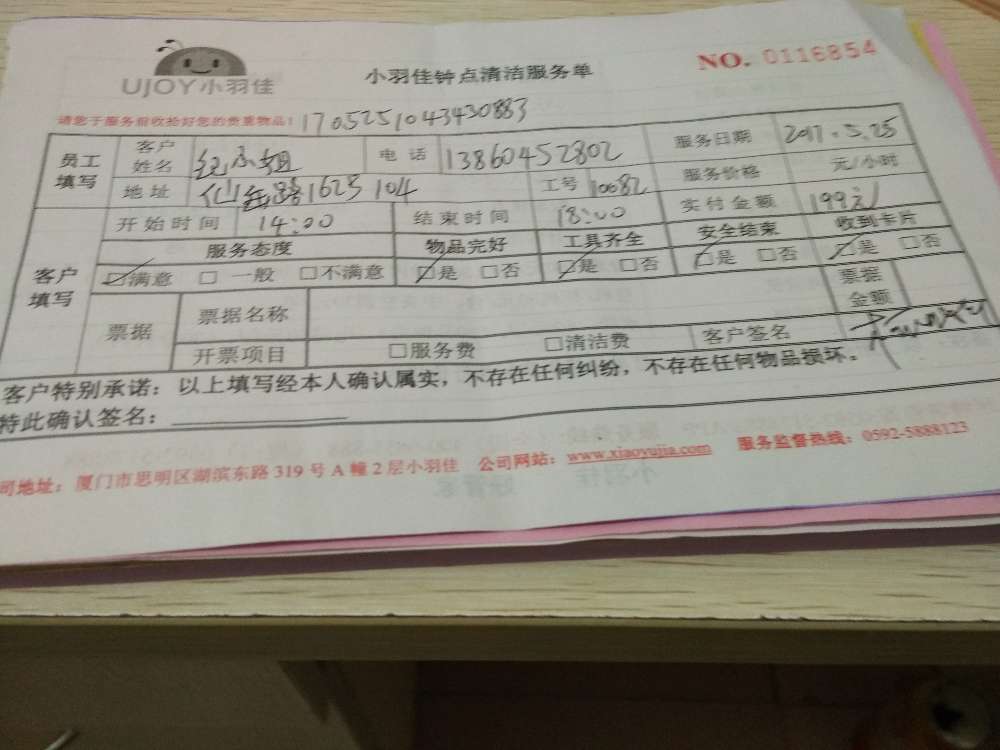 UJOY小羽佳
小羽佳钟点清洁服务单
NO. 0116854
请您于服务前收拾好您的贵重物品! 170525104343430883
员工填写 客户姓名 纪小姐 电话 13860452802 服务日期 2017.5.25
地址 仙岳路162号104 工号 10682 服务价格 元/小时
客户填写 开始时间 14:00 结束时间 18:00 实付金额 199元
服务态度 物品完好 工具齐全 安全结束 收到卡片
☑满意 □一般 □不满意 ☑是 □否 ☑是 □否 ☑是 □否 ☑是 □否
票据 票据名称 票据金额
开票项目 □服务费 □清洁费 客户签名
客户特别承诺：以上填写经本人确认属实，不存在任何纠纷，不存在任何物品损坏。
特此确认签名：
司地址：厦门市思明区湖滨东路319号A幢2层小羽佳 公司网站：www.xiaoyujia.com 服务监督热线：0592-5888123